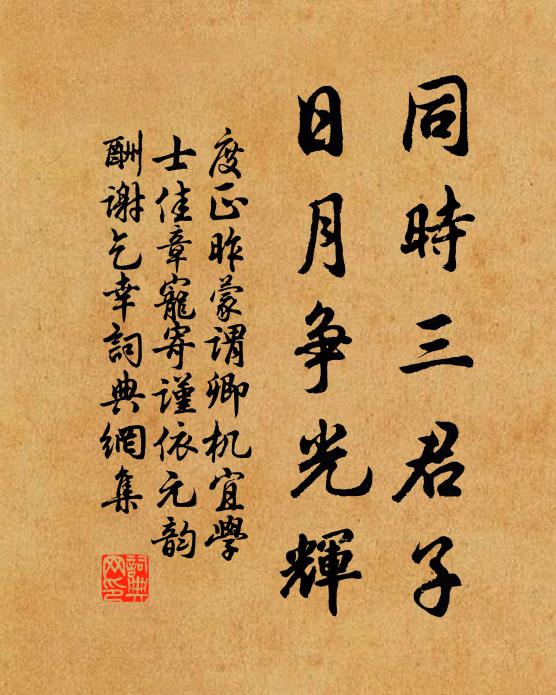 同時三君子
日月争光輝
度正昨蒙谓卿机宜學
士佳章寵寄谨依元韵
酬谢乞幸詞典網集
詞典
网印